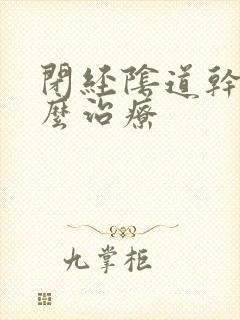 閉経陰道幹
麼治療
九掌柜